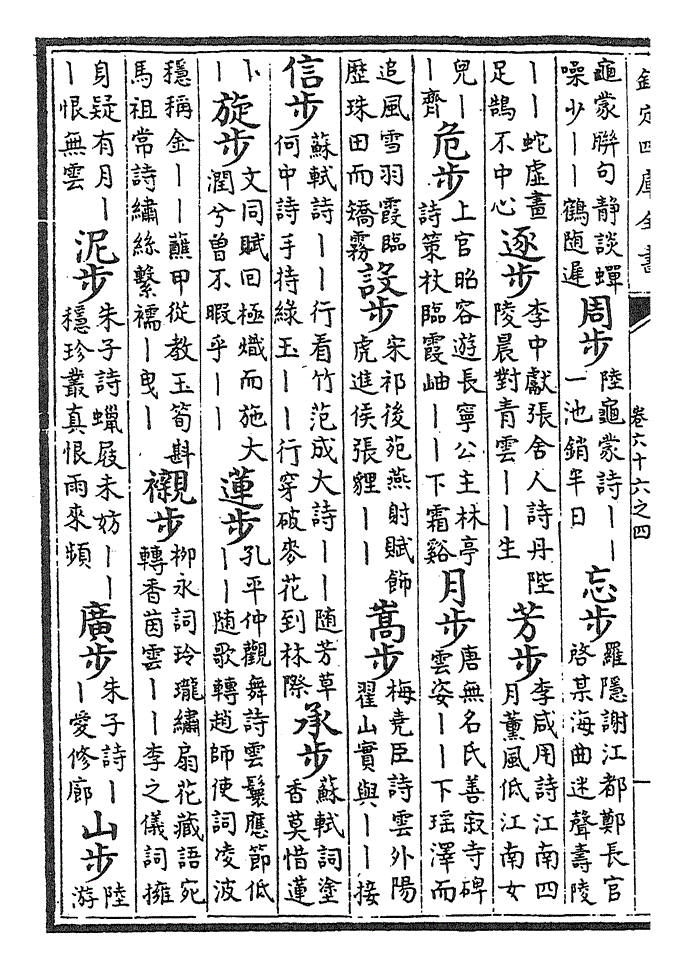 欽定四庫全書
卷六十六之四
一
龜蒙聯句静談蟬
噪少丨丨鶴随遲
周步
陸龜蒙詩丨丨
一池銷半日
忘步
羅隱謝江都鄭長官
啓某海曲迷聲壽陵
丨丨蛇虚畫
足鵠不中心
逐步
李中獻張舍人詩丹陛
陵晨對青雲丨丨生
芳步
李咸用詩江南四
月薰風低江南女
兒丨
丨齊
危步
上官昭容遊長寧公主林亭
詩策杖臨霞岫丨丨下霜谿
月步
唐無名氏善寂寺碑
雲姿丨丨下瑶澤而
追風雪羽霞臨
歴珠田而矯霧
設步
宋祁後苑燕射賦飾
虎進侯張貍丨丨
嵩步
梅堯臣詩雲外陽
翟山實與丨丨接
信步
蘇軾詩丨丨行看竹范成大詩丨丨随芳草
何中詩手持綠玉丨丨行穿破麥花到林際
承步
蘇軾詞塗
香莫惜蓮
丨
丨
旋步
文同賦回極熾而施大
潤兮曾不暇乎丨丨
蓮步
孔平仲觀舞詩雲鬟應節低
丨丨随歌轉趙師使詞凌波
穩稱金丨丨蘸甲從教玉筍斟
馬祖常詩繡絲繫襦丨曳丨
襯步
柳永詞玲瓏繡扇花藏語宛
轉香茵雲丨丨李之儀詞擁
身疑有月丨
丨恨無雲
泥步
朱子詩蠟屐未妨丨丨
穩珍叢真恨雨來頻
廣步
朱子詩丨
丨愛修廊
山步
陸
游